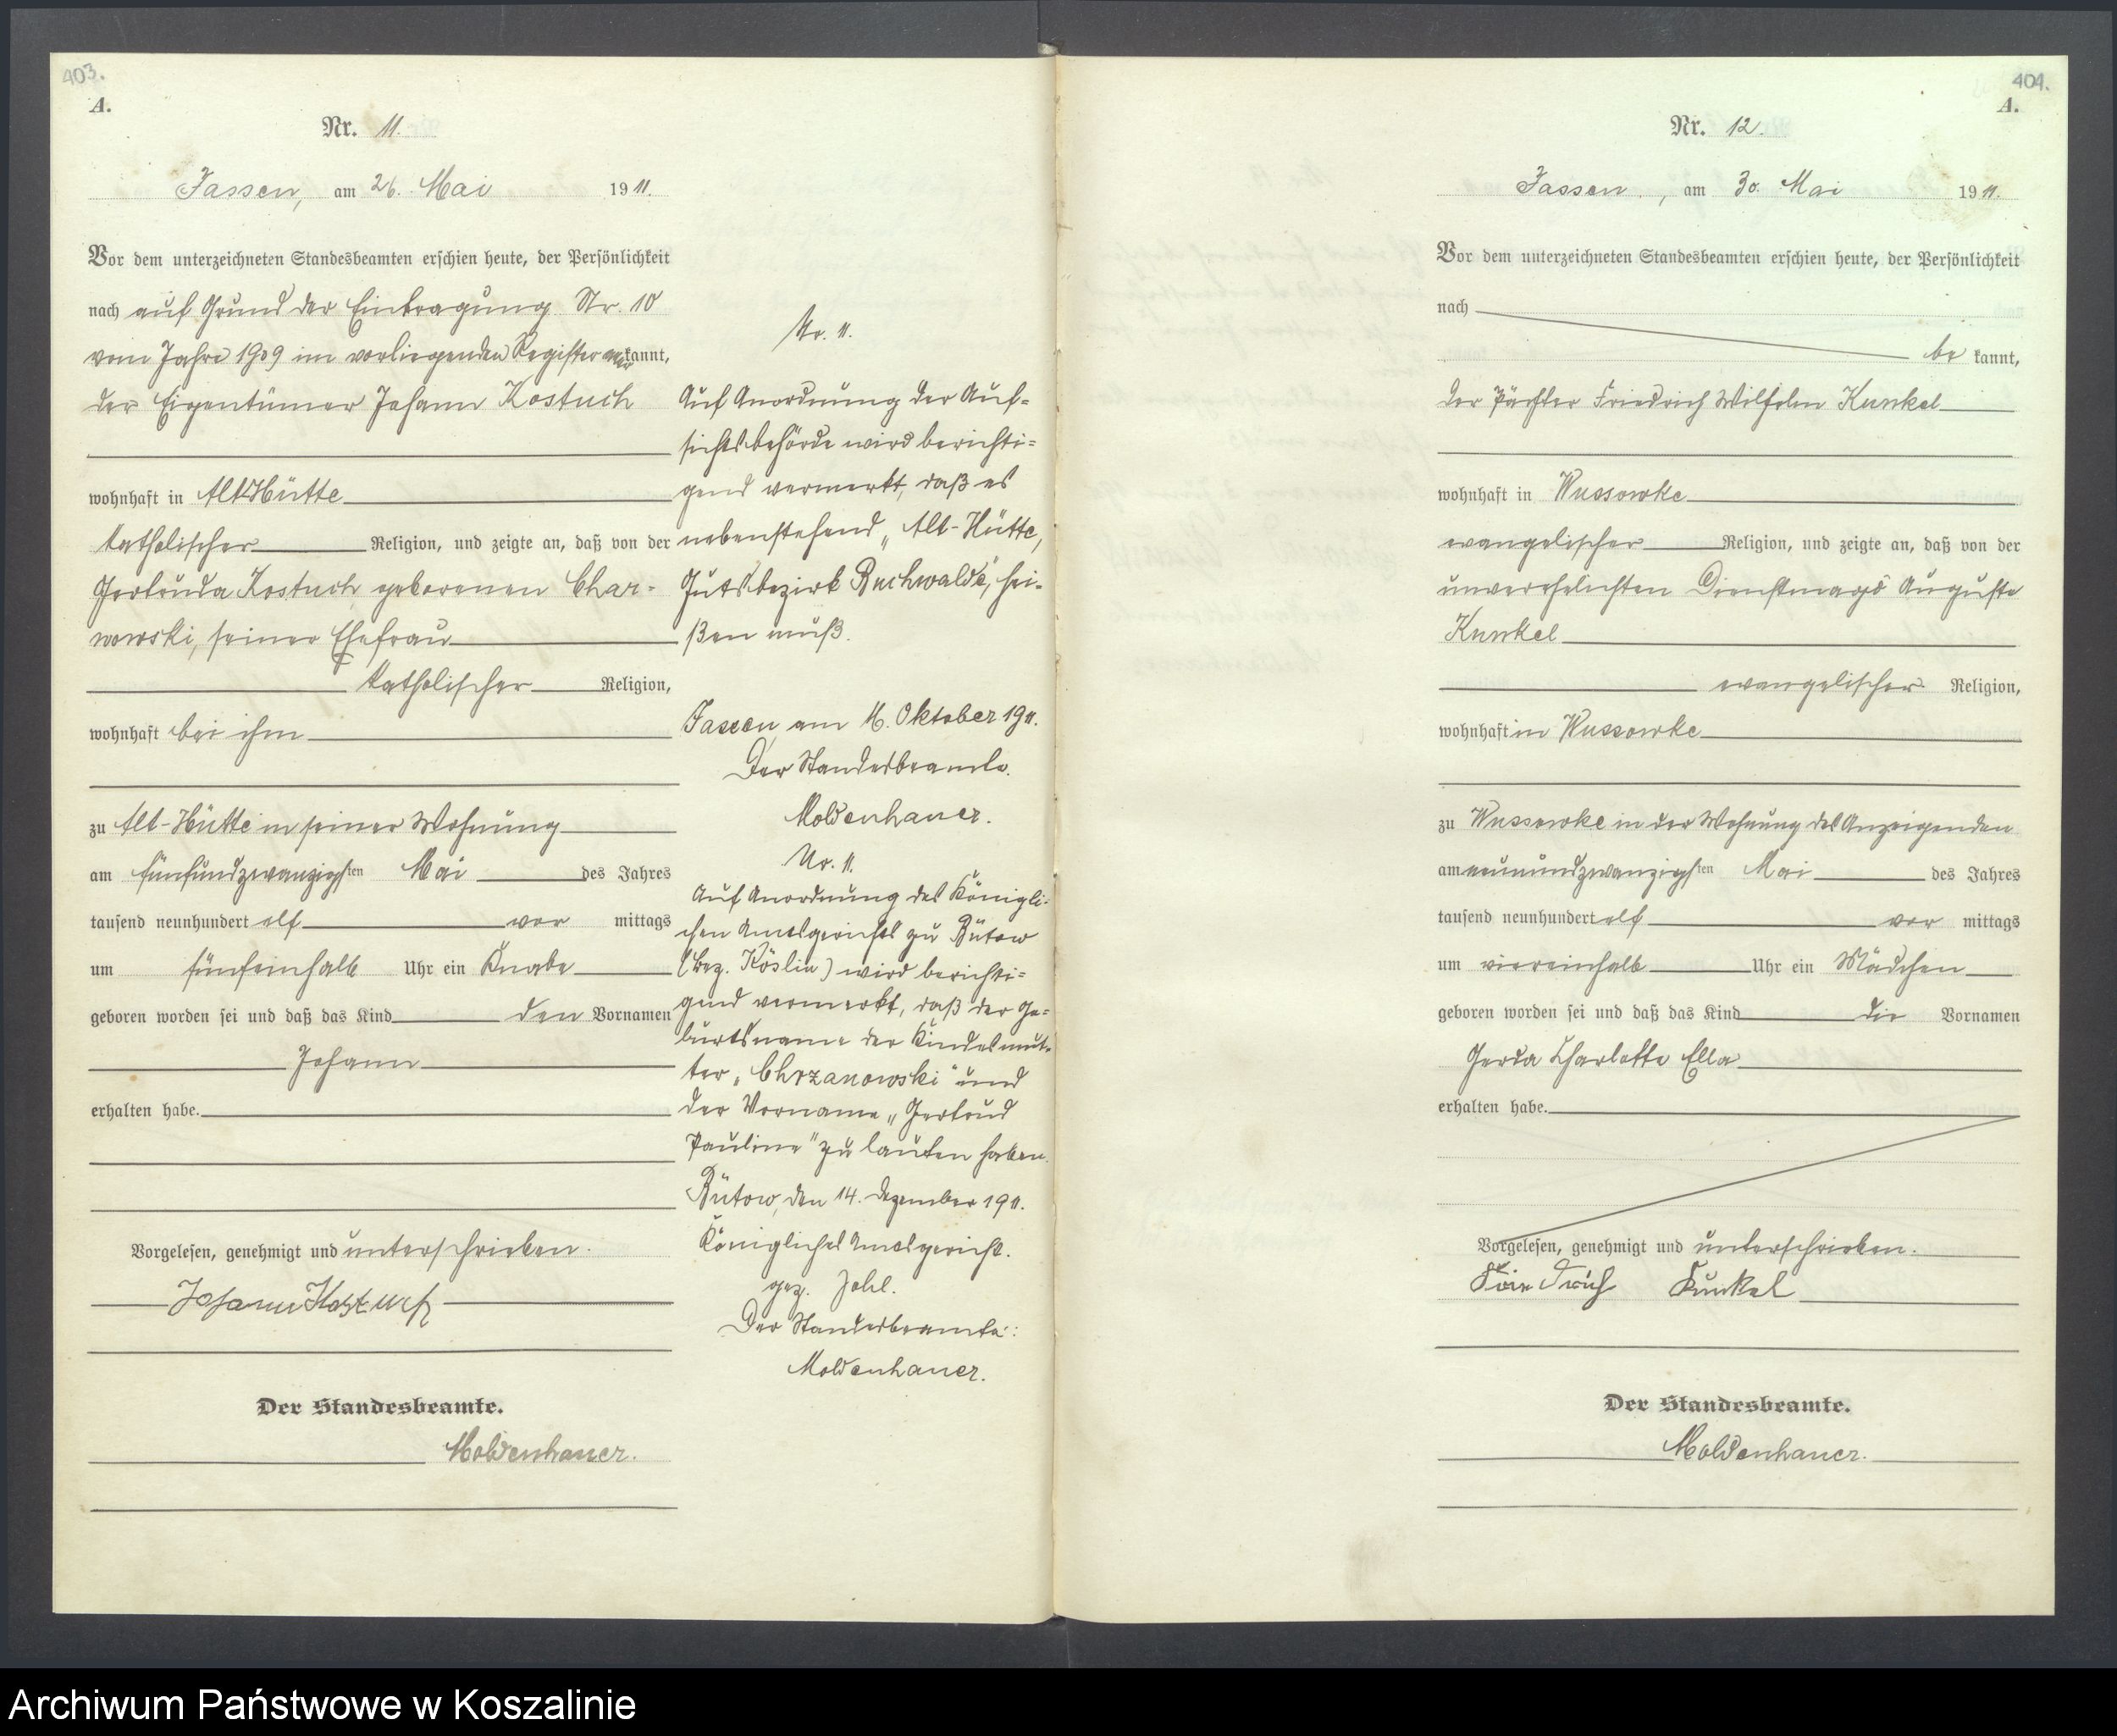 403.
A.
Nr. 11.
Jassen, am 26. Mai 1911.
Vor dem unterzeichneten Standesbeamten erschien heute, der Persönlichkeit
nach auf Grund der Eintragung Nr. 10
vom Jahre 1909 im vorliegenden Register kannt,
der Eigentümer Johann Kostuch
wohnhaft in Alt-Hütte
katholischer Religion, und zeigte an, daß von der
Gertruda Kostuch geborenen Char-
nowski, seiner Ehefrau
katholischer Religion,
wohnhaft bei ihm
zu Alt-Hütte in seiner Wohnung
am fünfundzwanzigsten Mai des Jahres
tausend neunhundert elf vor mittags
um fünfeinhalb Uhr ein Knabe
geboren worden sei und daß das Kind den Vornamen
Johann
erhalten habe.
Vorgelesen, genehmigt und unterschrieben.
Johann Kostuch
Der Standesbeamte.
Moldenhauer.
Nr. 11.
Auf Anordnung der Auf-
sichtsbehörde wird berichti-
gend vermerkt, daß es
nebenstehend „Alt-Hütte,
Gutsbezirk Buchwalde", hei-
ßen muß.
Jassen am 16. Oktober 1911.
Der Standesbeamte.
Moldenhauer.
Nr. 11.
Auf Anordnung des Königli-
chen Amtsgerichts zu Bütow
(Bez. Köslin) wird berichti-
gend vermerkt, daß der Ge-
burtsname der Kindesmut-
ter „Chrzanowski" und
der Vorname „Gertrud
Pauline" zu lauten haben.
Bütow, den 14. Dezember 1911.
Königliches Amtsgericht.
gez.
Der Standesbeamte:
Moldenhauer.
404.
A.
Nr. 12.
Jassen, am 30. Mai 1911.
Vor dem unterzeichneten Standesbeamten erschien heute, der Persönlichkeit
nach
be kannt,
der Pächter Friedrich Wilhelm Kunkel
wohnhaft in Wussowke
evangelischer Religion, und zeigte an, daß von der
unverehelichten Dienstmagd Auguste
Kunkel
evangelischer Religion,
wohnhaft in Wussowke
zu Wussowke in der Wohnung des Anzeigenden
am neunundzwanzigsten Mai des Jahres
tausend neunhundert elf vor mittags
um viereinhalb Uhr ein Mädchen
geboren worden sei und daß das Kind die Vornamen
Gerda Charlotte Ella
erhalten habe.
Vorgelesen, genehmigt und unterschrieben.
Friedrich Kunkel
Der Standesbeamte.
Moldenhauer.
Archiwum Państwowe w Koszalinie